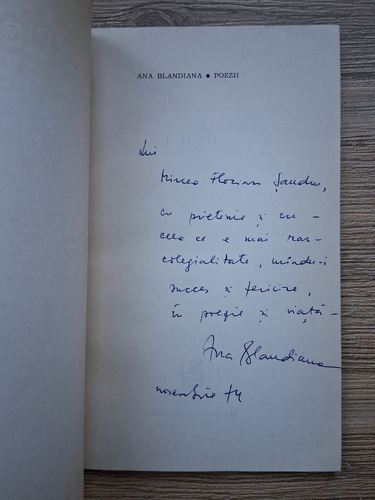 ANA BLANDIANA • POEZII
Lui
Mircea Florian Șandru,
cu prietenie și cu –
ceea ce e mai rar –
colegialitate, urându-i
succes și fericire,
în poezie și viață –
Ana Blandiana
noiembrie 74